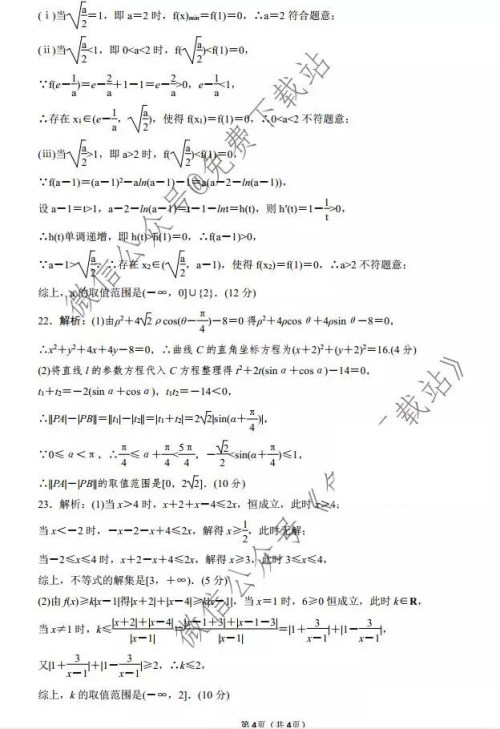 (ⅰ)当√(a/2)=1，即 a=2 时，f(x)min=f(1)=0，∴a=2 符合题意；
(ⅱ)当√(a/2)<1，即 0<a<2 时，f(√(a/2))<f(1)=0，
∵f(e−1/a)=e−2/a+1−1=e−2/a>0，e−1/a<1，
∴存在 x₁∈(e−1/a，√(a/2))，使得 f(x₁)=f(1)=0，∴0<a<2 不符题意；
(ⅲ)当√(a/2)>1，即 a>2 时，f(√(a/2))<f(1)=0，
∵f(a−1)=(a−1)²−aln(a−1)−1=a(a−2−ln(a−1))，
设 a−1=t>1，a−2−ln(a−1)=t−1−lnt=h(t)，则 h′(t)=1−1/t>0，
∴h(t)单调递增，即 h(t)>h(1)=0，∴f(a−1)>0，
∵a−1>√(a/2)，∴存在 x₂∈(√(a/2)，a−1)，使得 f(x₂)=f(1)=0，∴a>2 不符题意；
综上，a 的取值范围是(−∞，0]∪{2}．(12 分)
22．解析：(1)由ρ²+4√2ρcos(θ−π/4)−8=0 得ρ²+4ρcos θ+4ρsin θ−8=0，
∴x²+y²+4x+4y−8=0，∴曲线 C 的直角坐标方程为(x+2)²+(y+2)²=16.(4 分)
(2)将直线 l 的参数方程代入 C 方程整理得 t²+2t(sin α+cos α)−14=0，
t₁+t₂=−2(sin α+cos α)，t₁t₂=−14<0，
∴||PA|−|PB||=||t₁|−|t₂||=|t₁+t₂|=2√2|sin(α+π/4)|，
∵0≤α<π，∴π/4≤α+π/4<5π/4，−√2/2<sin(α+π/4)≤1，
∴||PA|−|PB||的取值范围是[0，2√2]．(10 分)
23．解析：(1)当 x>4 时，x+2+x−4≤2x，恒成立，此时 x>4；
当 x<−2 时，−x−2−x+4≤2x，解得 x≥1/2，此时无解；
当−2≤x≤4 时，x+2−x+4≤2x，解得 x≥3，此时 3≤x≤4，
综上，不等式的解集是[3，+∞)．(5 分)
(2)由 f(x)≥k|x−1|得|x+2|+|x−4|≥k|x−1|，当 x=1 时，6≥0 恒成立，此时 k∈R，
当 x≠1 时，k≤(|x+2|+|x−4|)/|x−1|=(|x−1+3|+|x−1−3|)/|x−1|=|1+3/(x−1)|+|1−3/(x−1)|，
又|1+3/(x−1)|+|1−3/(x−1)|≥2，∴k≤2，
综上，k 的取值范围是(−∞，2]．(10 分)
第 4页（共 4页）
微信公众号@免费下载站
微信公众号《
载站》